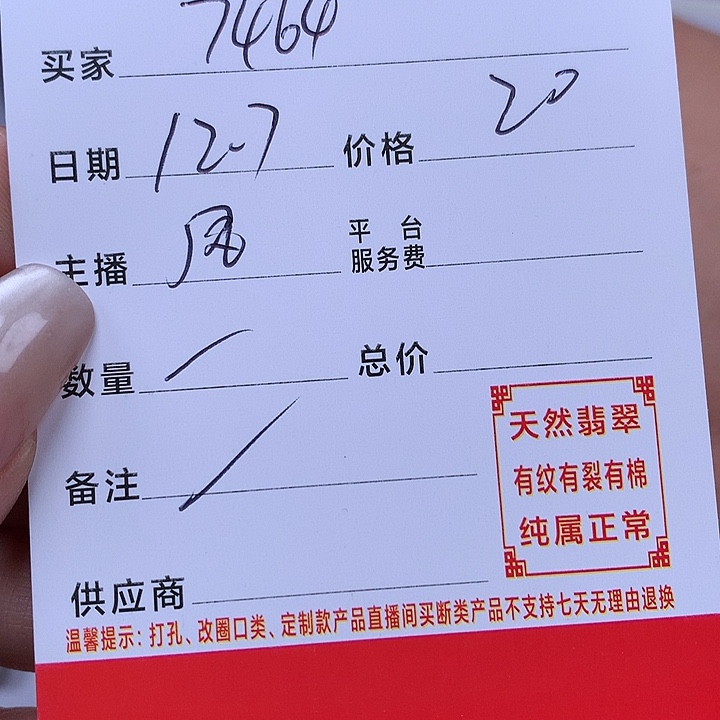 买家 7464
日期 12-7 价格 20
主播 风 平台
服务费
数量 一 总价
天然翡翠
备注 / 有纹有裂有棉
纯属正常
供应商
温馨提示：打孔、改圈口类、定制款产品直播间买断类产品不支持七天无理由退换